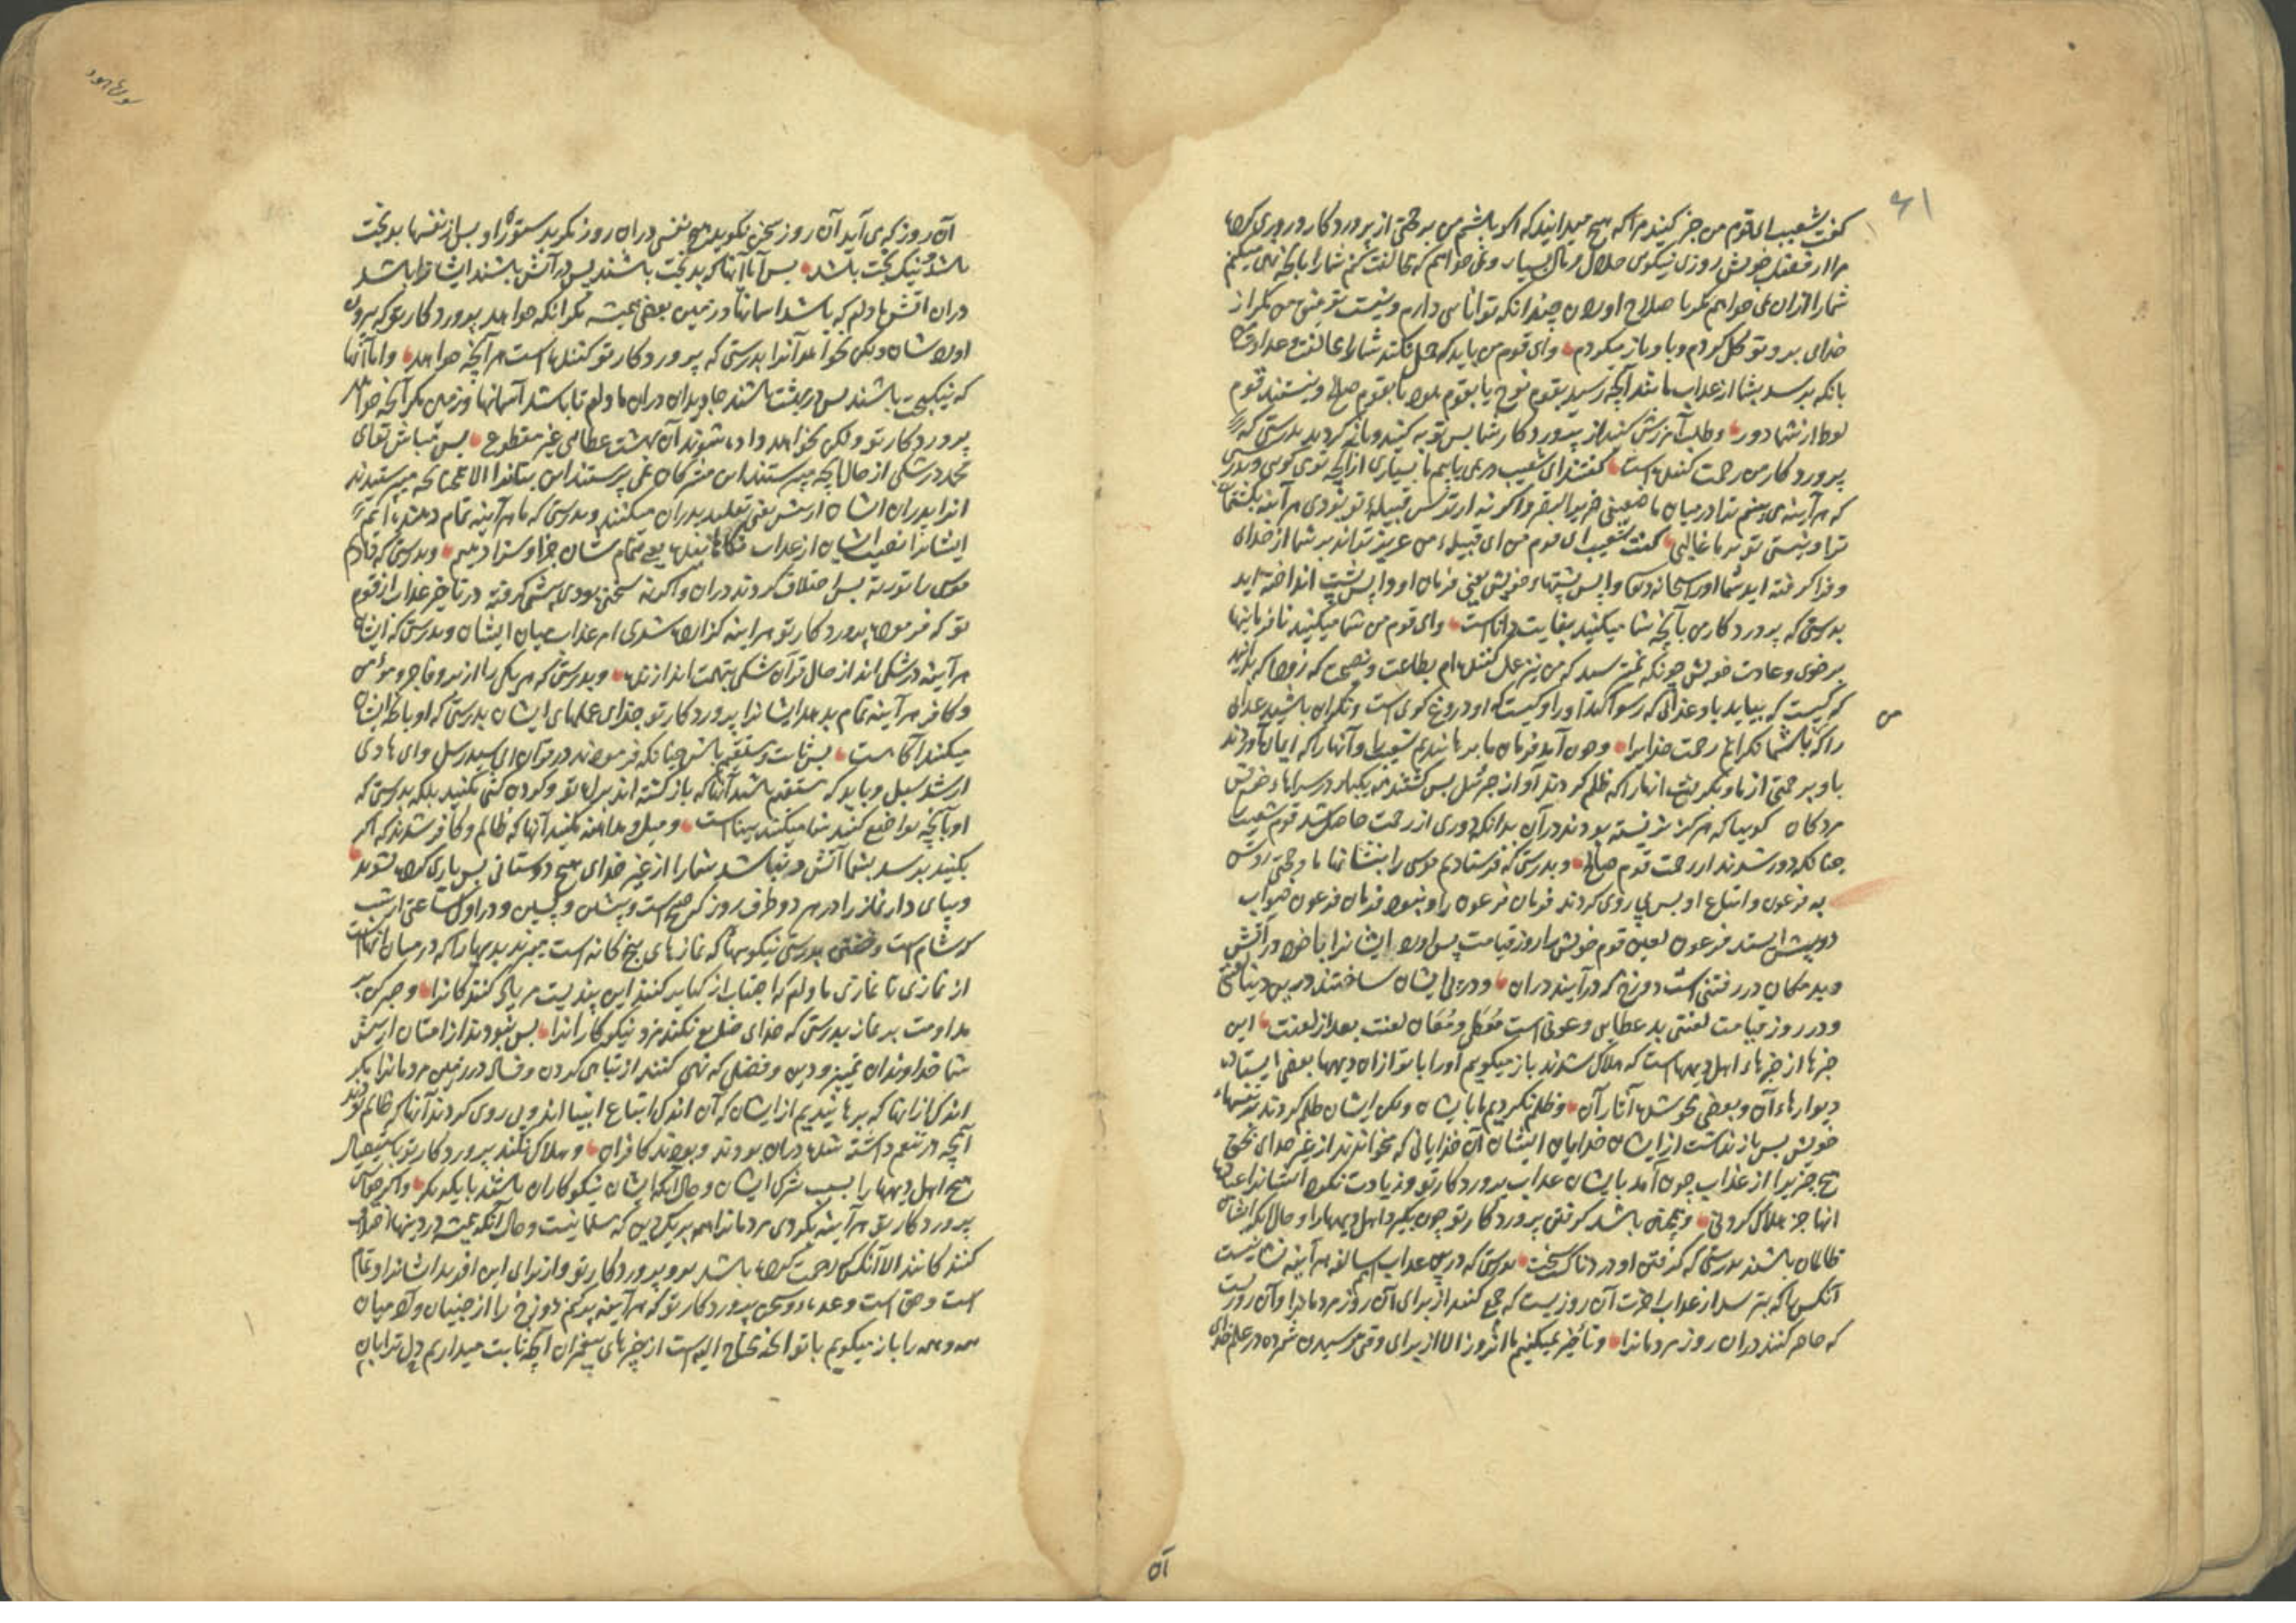 ۶۱
گفت شعیب ای قوم من خبر کنید مرا که هیچ میدانید که اگر باشم من بر حجتی از پروردگار و روزی کرده
مرا از فضل خویش روزی نیکوی حلال و مال بسیار و نمی خواهم که مخالفت کنم شما را بانچه نهی میکنم
شما را ازان نمی خواهم مگر باصلاح اوردن چندانکه توانائی دارم و نیست توفیق من مگر از
خدای برو توکل کردم و باو باز میگردم وای قوم من باید که حمل نکند شما را مخالفت و عداوت من
بانکه برسد بشما از عذاب مانند آنچه رسید بقوم نوح یا بقوم هود یا بقوم صالح و نیستند قوم
لوط از شما دور و طلب آمرزش کنید از پروردگار شما پس توبه کنید و باز گردید بدرستی که
پروردگار من رحمت کننده است گفتند ای شعیب در نمی یابیم ما بسیاری ازانچه تو می گویی و بدرستی
که هر آینه می بینیم ترا در میان ما ضعیفی ضریر البصر و اگر نه از ترس قبیله تو بودی هر آینه بکشتمان
ترا و نیستی تو بر ما غالب گفت شعیب ای قوم من ای قبیله من عزیز تراند بر شما از خدای
و فرا گرفته اید شما اورا سبحانه وتعالی واپس پشتهاء خویش یعنی فرمان او واپس پشت انداخته اید
بدرستی که پروردگار من بآنچه شما میکنید بغایت داناست وای قوم من شما میکنید نافرمانیها
بر خوی و عادت خویش چونکه نمی ترسید که من نیز عمل کننده ام بطاعت و نصیحت که زود باشد که بدانید
که کیست که بیاید باو عذابی که رسوا کند اورا و کیست که او دروغ گوی است و نگران باشید عذاب
من
را که با شما نگرانم رحمت خدایرا و چون آمد فرمان ما برهانیدیم شعیب را و آنها را که ایمان آوردند
باو بر حمتی از ما و بگرفت انها را که ظلم کردند آواز جبرئیل پس گشتند بیکبار در سراهاء خویش
مردگان گوییا که هرگز نزیسته بودند درآن بدانکه دوری از رحمت حاصل شد قوم شعیب را
چنانکه دور شدند از رحمت قوم صالح و بدرستی که فرستادیم موسی را بنشانها ما و حجتی روشن
به فرعون و اتباع او پس پی روی کردند فرمان فرعون را و نبود فرمان فرعون صواب
در پیش ایستد فرعون لعین قوم خویش را روز قیامت پس اورد ایشانرا با خود در آتش
و بد مکان در رفتنی است دوزخ که درآیند دران و در پی ایشان ساختند درین دنیا لعنتی
و در روز قیامت لعنتی بد عطایی و عونی است معطی و معان لعنت بعد از لعنت این
خبرها از خبرهاء اهل دیههاست که هلاک شدند باز میگویم آورا با تو ازان دیهها بعضی ایستاده
دیوارهاء آن و بعضی محو شده آثار آن و ظلم نکردیم ما با ایشان ولکن ایشان ظلم کردند بر نفسهاء
خویش پس باز نداشت از ایشان خدایان ایشان آن خدایانی که میخواندند از غیر خدای بحق
هیچ چیزیرا از عذاب چون آمد بایشان عذاب پروردگار تو و زیادت نکرد ایشانرا عبادت
انها جز هلاک کردنی و همچنین باشد گرفتن پروردگار تو چون بگیرد اهل دیهها را و حال آنکه ایشان
ظالمان باشند بدرستی که گرفتن او دردناک سخت بدرستی که درین عذاب امم سالفه هر آینه نشانیست
آنکس را که بترسد از عذاب آخرت آن روزیست که جمع کنند از برای آن روز مردمانرا و آن روزیست
که حاضر کنند دران روز مردمانرا و تأخیر نمیکنیم ما آنروز الا از برای وقتی رسیدن شمرده در علم خدای
آن
سوره هود
آن روز که می آید آن روز سخن نگوید هیچ نفسی دران روز مگر بدستوری او پس از نفسها بدبخت
باشد و نیکبخت باشد پس اما آنها که بدبخت باشند پس در آتش باشند ایشانرا باشد
دران آتش مادام که باشد اسمانها و زمین یعنی همیشه مگر آنکه خواهد پروردگار تو که بیرون
اورد شان ولکن نخواهد آنرا بدرستی که پروردگار تو کننده است هر آنچه خواهد واما آنها
که نیکبخت باشند پس در بهشت باشند جاویدان دران مادام تا باشد آسمانها و زمین مگر آنچه خواهد
پروردگار تو ولکن نخواهد داده شوند آن بهشت عطایی غیر مقطوع پس مباش تو ای
محمد در شکی از حال آنچه می پرستند این مشرکان نمی پرستند این بتانرا الا همچنانکه می پرستیدند
انرا پدران ایشان از پیش یعنی تقلید پدران میکنند و بدرستی که ما هر آینه تمام دهنده ایم
ایشانرا نصیب ایشان از عذاب ناکاهانیده یعنی تمام شان جزا و سزا دهیم و بدرستی که دادیم
موسی را توریة پس اختلاف کردند دران و اگر نه سخنی بودی پیشی گرفته در تاخیر عذاب از قوم
تو که فرموده پروردگار تو هر آینه گزارده شدی امر عذاب میان ایشان و بدرستی که ایشان
هر آینه در شکی اند از حال قرآن شکی بتهمت اندازنده و بدرستی که هر یکی را از بر و فاجر و مؤمن
و کافر هر آینه تمام بدهد ایشانرا پروردگار تو جزای عملهای ایشان بدرستی که او بانچه ایشان
میکنند آگاهست پس ثابت و مستقیم باش چنانکه فرموده اند در قرآن ای سید رسل وای هادی
ارشد سبل و باید که مستقیم باشد آنها که باز گشته اند براه تو و گردن کشی نکنید بلکه بدرستی که
او بآنچه تواضع کنید شما میکنید بیناست و میل و مداهنه نکنید آنها که ظالم و کافر شدند که اگر
بکنید برسد بشما آتش و نباشد شما را از غیر خدای هیچ دوستانی پس یاری کرده نشوید
و بپای دار نماز را در هر دو طرف روز که صبح است و پیشین و پسین و در اول ساعتی از شب
که شام است و خفتن بدرستی نیکویها که نمازهای پنج گانه است میبرند بدیها را که در میان انهاست
از نمازی تا نمازی مادام که اجتناب از کبایر کنند این پندیست مر یاد کنندگانرا و صبر کن بر
مداومت بر نماز بدرستی که خدای ضایع نکند مزد نیکوکارانرا پس نبودند از امتان از پیش
شما خداوندان تمییز و دین و فضلی که نهی کنند از تباهی کردن و فساد در زمین مردمانرا مگر
اندکی ازانها که برهانیدیم از ایشان که آن اندکی اتباع انبیا اند و پی روی کردند آنها که ظالم بودند
آنچه در تنعم داشته شده دران بودند و بودند کافران و هلاک نکند پروردگار تو باستیصال
هیچ اهل دیهها را بسبب شرک ایشان و حال آنکه ایشان نیکوکاران باشند با یکدیگر و اگر خواستی
پروردگار تو هر آینه بکردی مردمانرا همه بر یک دین که مسلمانیست و حال آنکه همیشه در دینها اختلاف
کنندگانند الا آنکس که رحمت کرده باشد برو پروردگار تو و از برای این افرید ایشانرا و تمام
است و حق است وعده و سخن پروردگار تو که هر آینه پر کنم دوزخ را از جنیان و آدمیان
همه و همه را باز میگویم با تو آنچه محتاج الیه است از خبرهای پیغمبران آنچه ثابت میداریم دل ترا بآن